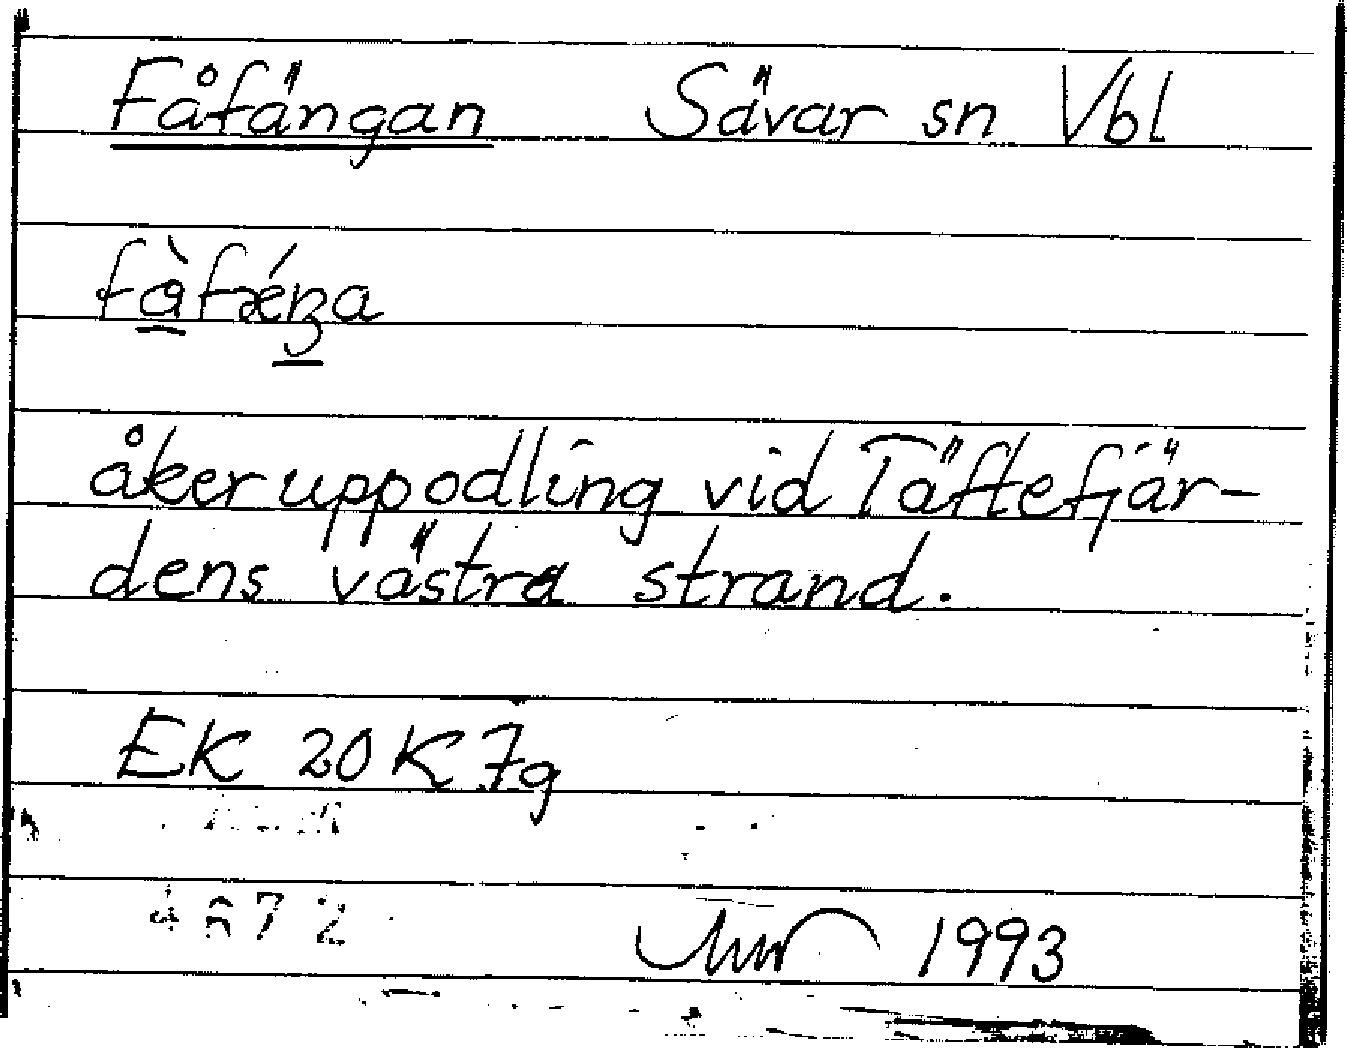 Fåfängan Sävar sn Vbl
åkeruppodling vid Täftefjär-
dens västra strand.
EK 20K7g
1993